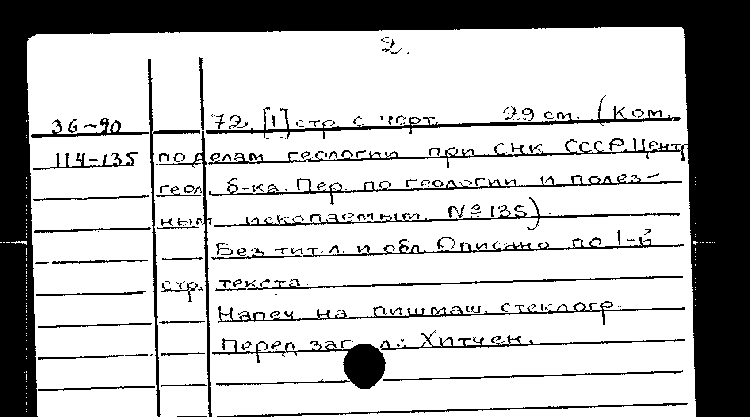 2.
36-90 72, [1] стр. с черт. 29 см. (Ком.
114-135 по делам геологии при СНК СССР. Центр
геол. б-ка. Пер. по геологии и полез-
ным ископаемым. № 135)
Без тит. л. и обл. Описано по 1-й
стр. текста.
Напеч. на пишмаш. стеклогр.
Перед заг. Хитчен.